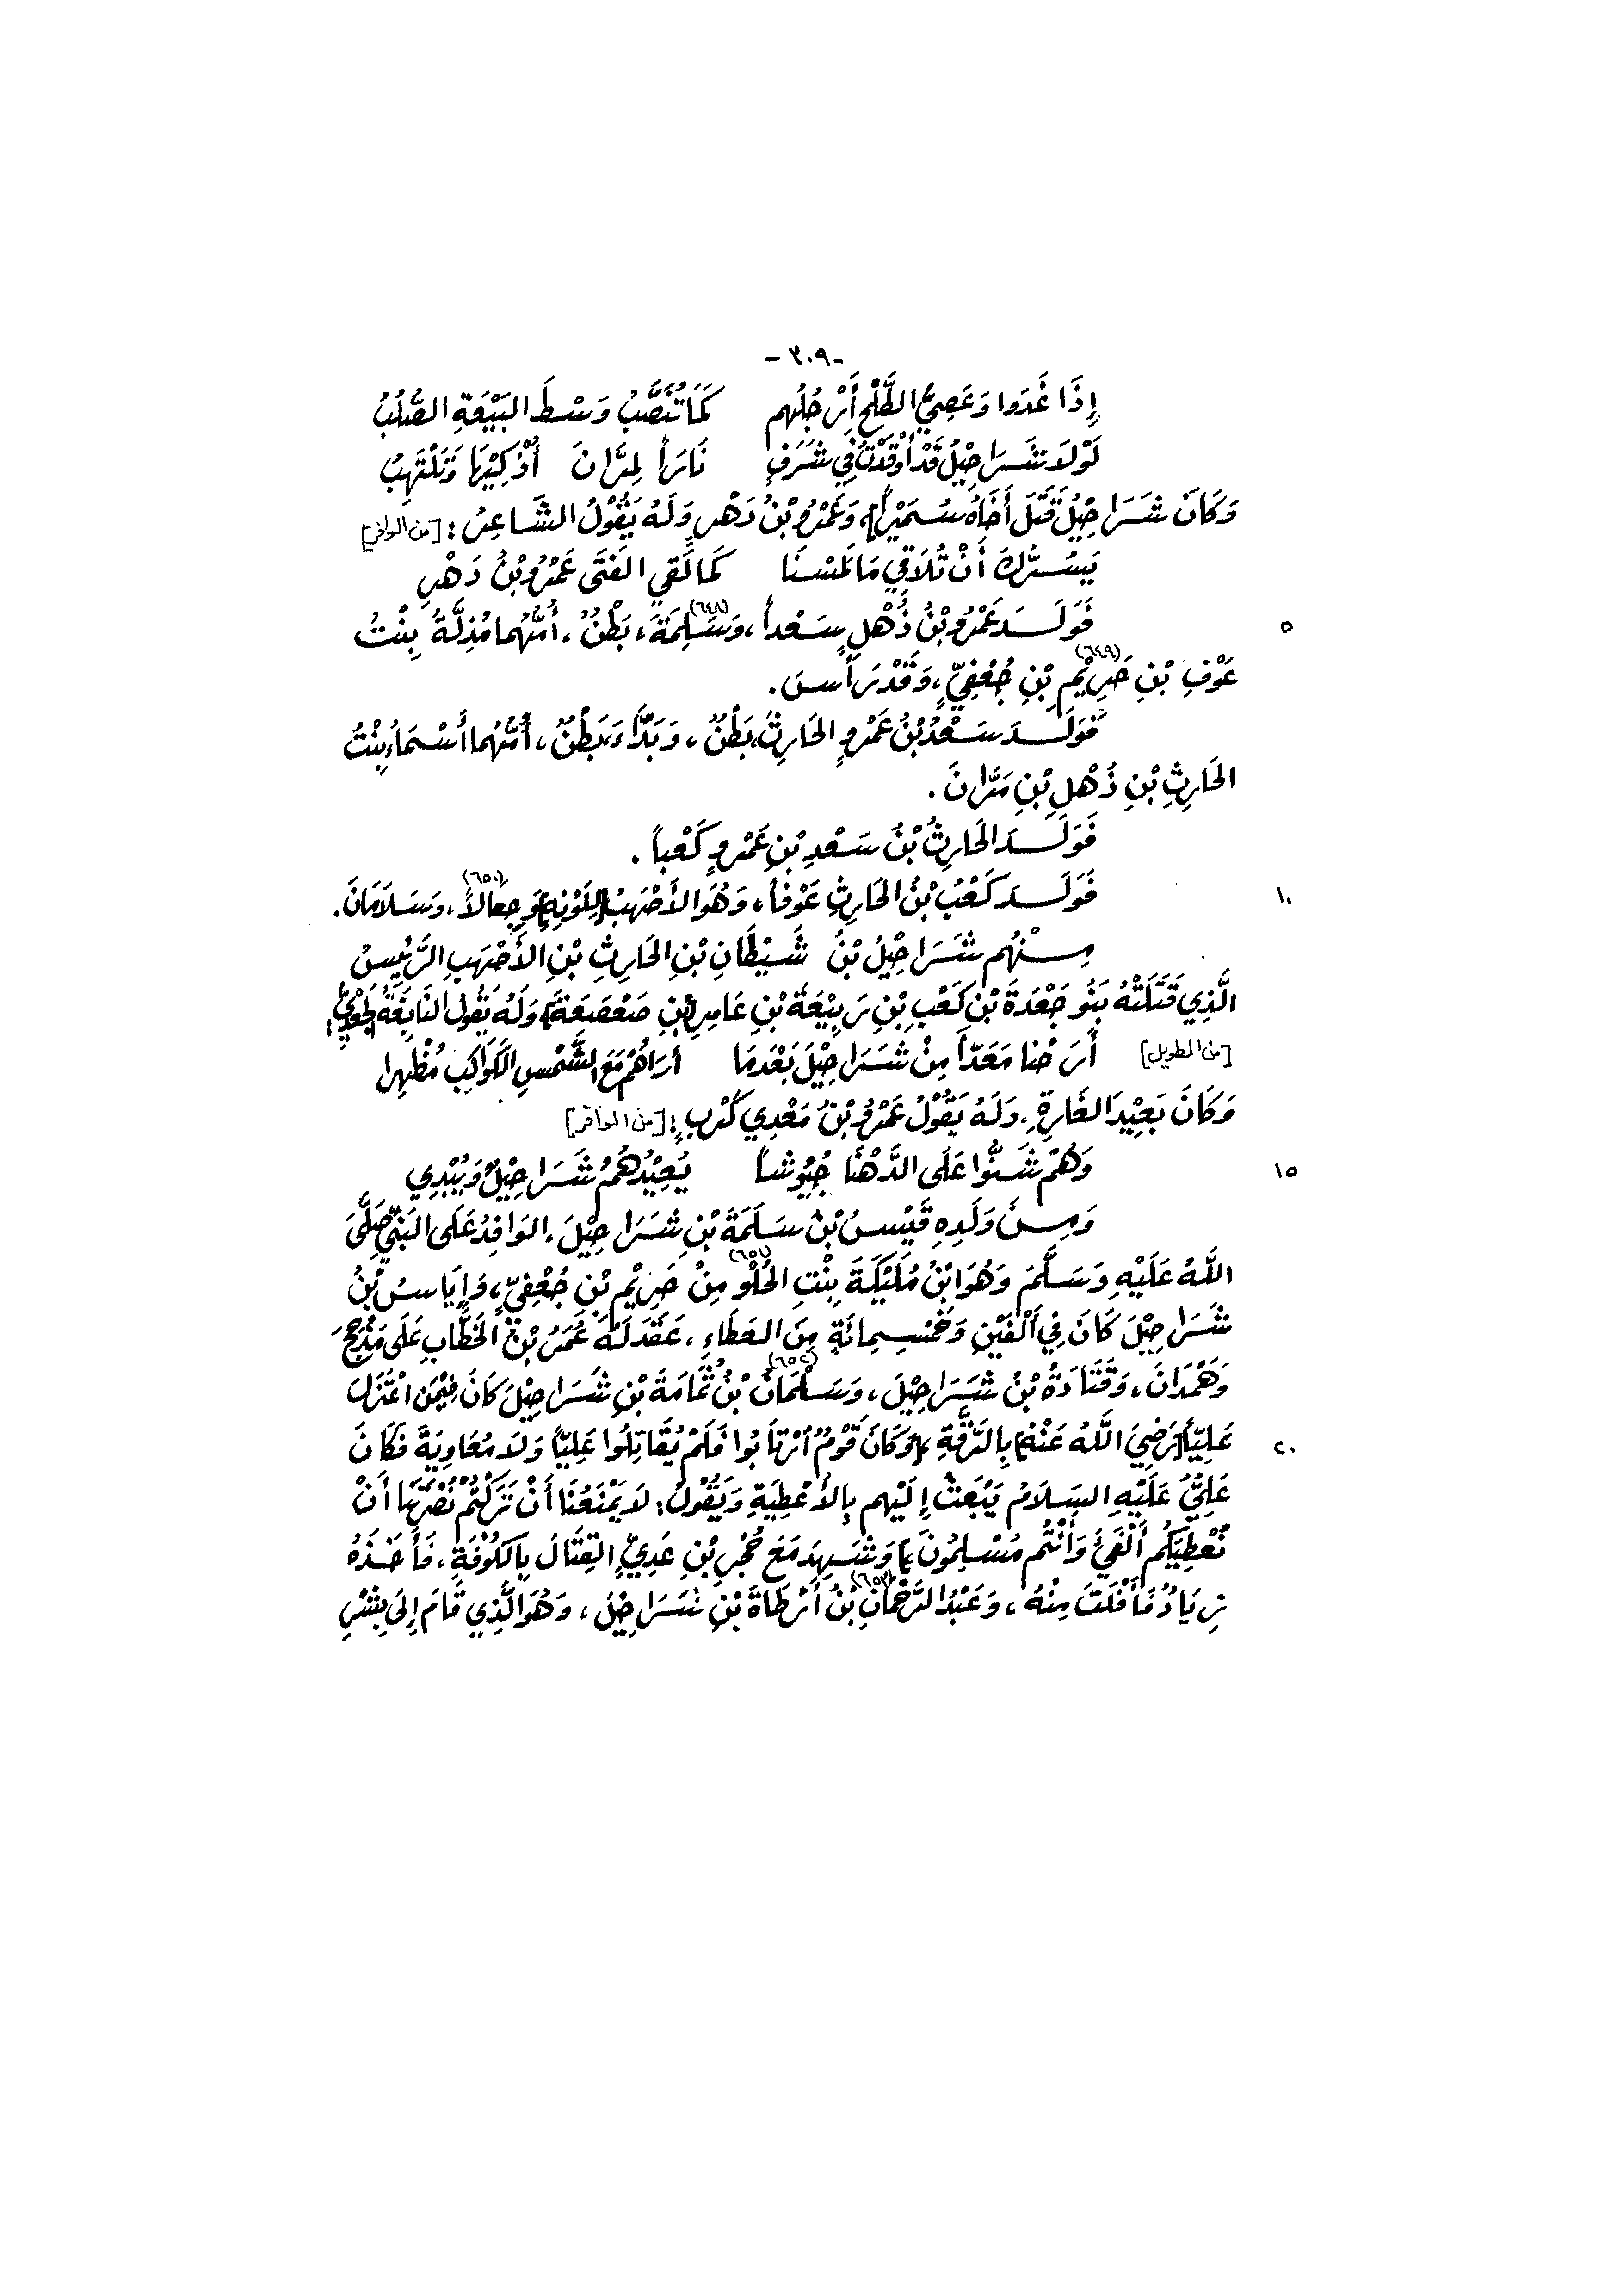 -٣٠٩-
إِذَا غَدَوا وَعَصِيُّ الطَّلْحِ أَرْجُلُهم كَمَا تُنَصَّبُ وَسْطَ البَيْعَةِ الصُّلُبُ
لَوْلَا شَرَاحِيْلُ قَدْ أَوْقَدْتُ فِي شَرَفٍ نَارَاً لِمَرَّانَ أُذْكِيْهَا وَتَلْتَهِبُ
وَكَانَ شَرَاحِيْلُ قَتَلَ أَخَاهُ سُمَيْرَاً، وَعَمْرُو بْنُ دَهْرٍ وَلَهُ يَقُوْلُ الشَّاعِرُ: [من الوافر]
يَسُرُّكَ أَنْ تُلَاقِي مَا لَمَسْنَا كَمَا لَقِي الفَتَى عَمْرُو بْنُ دَهْرِ
فَوَلَدَ عَمْرُو بْنُ ذُهْلٍ سَعْداً، وَسَلِمَةَ (٦٤٨)، بَطْنٌ، أُمُّهُما مُذِلَّةُ بِنْتُ ٥
عَوْفِ بْنِ حَرِيْمِ (٦٤٩) بْنِ جُعْفِيٍّ، وَقَدْ رَأَسَ.
فَوَلَدَ سَعْدُ بْنُ عَمْرٍو الحَارِثَ، بَطْنٌ، وَبَدَّاءَ، بَطْنٌ، أُمُّهُما أَسْمَاءُ بِنْتُ
الحَارِثِ بْنِ ذُهْلِ بْنِ مَرَّانَ.
فَوَلَدَ الحَارِثُ بْنُ سَعْدِ بْنِ عَمْرٍو كَعْباً.
فَوَلَدَ كَعْبُ بْنُ الحَارِثِ عَوْفاً، وَهُوَ الأَصْهَبُ [لِلَوْنِهِ] وَجِعَالاً (٦٥٠)، وَسَلَامَانَ. ١٠
مِنْهُم شَرَاحِيْلُ بْنُ شَيْطَانِ بْنِ الحَارِثِ بْنِ الأَصْهَبِ الرَّئِيسُ
الَّذِي قَتَلَتْهُ بَنُو جَعْدَةَ بْنِ كَعْبِ بْنِ رَبِيْعَةَ بْنِ عَامِرِ [بْنِ صَعْصَعَةَ] وَلَهُ يَقُولُ النَابِغَةُ الجَعْدِيُّ:
[من الطويل] أَرَحْنا مَعَدّاً مِنْ شَرَاحِيْلَ بَعْدَمَا أَرَاهُمْ مَعَ الشَّمْسِ الكَوَاكِبَ مُظْهِرا
وَكَانَ بَعِيْدَ الغَارَةِ. وَلَهُ يَقُوْلُ عَمْرُو بْنُ مَعْدِي كَرْبٍ: [من الوافر]
وَهُمْ شَنُّوا عَلَى الدَّهْنَا جُيُوشاً يُعِيْدُهُمُ شَرَاحِيْلٌ وَيُبْدِي ١٥
وَمِنْ وَلَدِهِ قَيْسُ بْنُ سَلَمَةَ بْنِ شَرَاحِيْلَ، الوَافِدُ عَلَى النَبِيِّ صَلَّى
اللَّهُ عَلَيْهِ وَسَلَّمَ وَهُوَ ابْنُ مُلَيْكَةَ بِنْتِ الحُلْوِ (٦٥١) مِنْ حَرِيْمِ بْنِ جُعْفِيٍّ، وَإِيَاسُ بْنُ
شَرَاحِيْلَ كَانَ فِي أَلْفَيْنِ وَخَمْسِمِائَةٍ مِنَ العَطَاءِ، عَقَدَ لَهُ عُمَرُ بْنُ الخَطَّابِ عَلَى مَذْحِجَ
وَهَمْدَانَ، وَقَتَادَةُ بْنُ شَرَاحِيْلَ، وَسَلْمَانُ (٦٥٢) بْنُ ثُمَامَةَ بْنِ شَرَاحِيْلَ كَانَ فِيْمَنِ اعْتَزَلَ
عَلِيّاً [رَضِيَ اللَّهُ عَنْهُ] بِالرَّقَّةِ [وَكَانَ قَوْمٌ ارْتَابُوا فَلَمْ يُقَاتِلُوا عَلِيّاً وَلَا مُعَاوِيَةَ فَكَانَ ٢٠
عَلِيٌّ عَلَيْهِ السَلَامُ يَبْعَثُ إِلَيْهِم بِالأَعْطِيَةِ وَيَقُوْلُ: لَا يَمْنَعُنَا أَنْ تَرَكْتُمْ نُصْرَتَنَا أَنْ
نُعْطِيَكُم أَلْفَيْءَ وَأَنْتُم مُسْلِمُونَ] وَشَهِدَ مَعَ حُجْرِ بْنِ عَدِيٍّ القِتَالَ بِالكُوْفَةِ، فَأَخَذَهُ
زِيَادُ فَأَفْلَتَ مِنْهُ، وَعَبْدُ الرَّحْمَانِ (٦٥٣) بْنُ أَرْطَاةَ بْنِ شَرَاحِيْلَ، وَهُوَ الَّذِي قَامَ إِلَى بِشْرِ